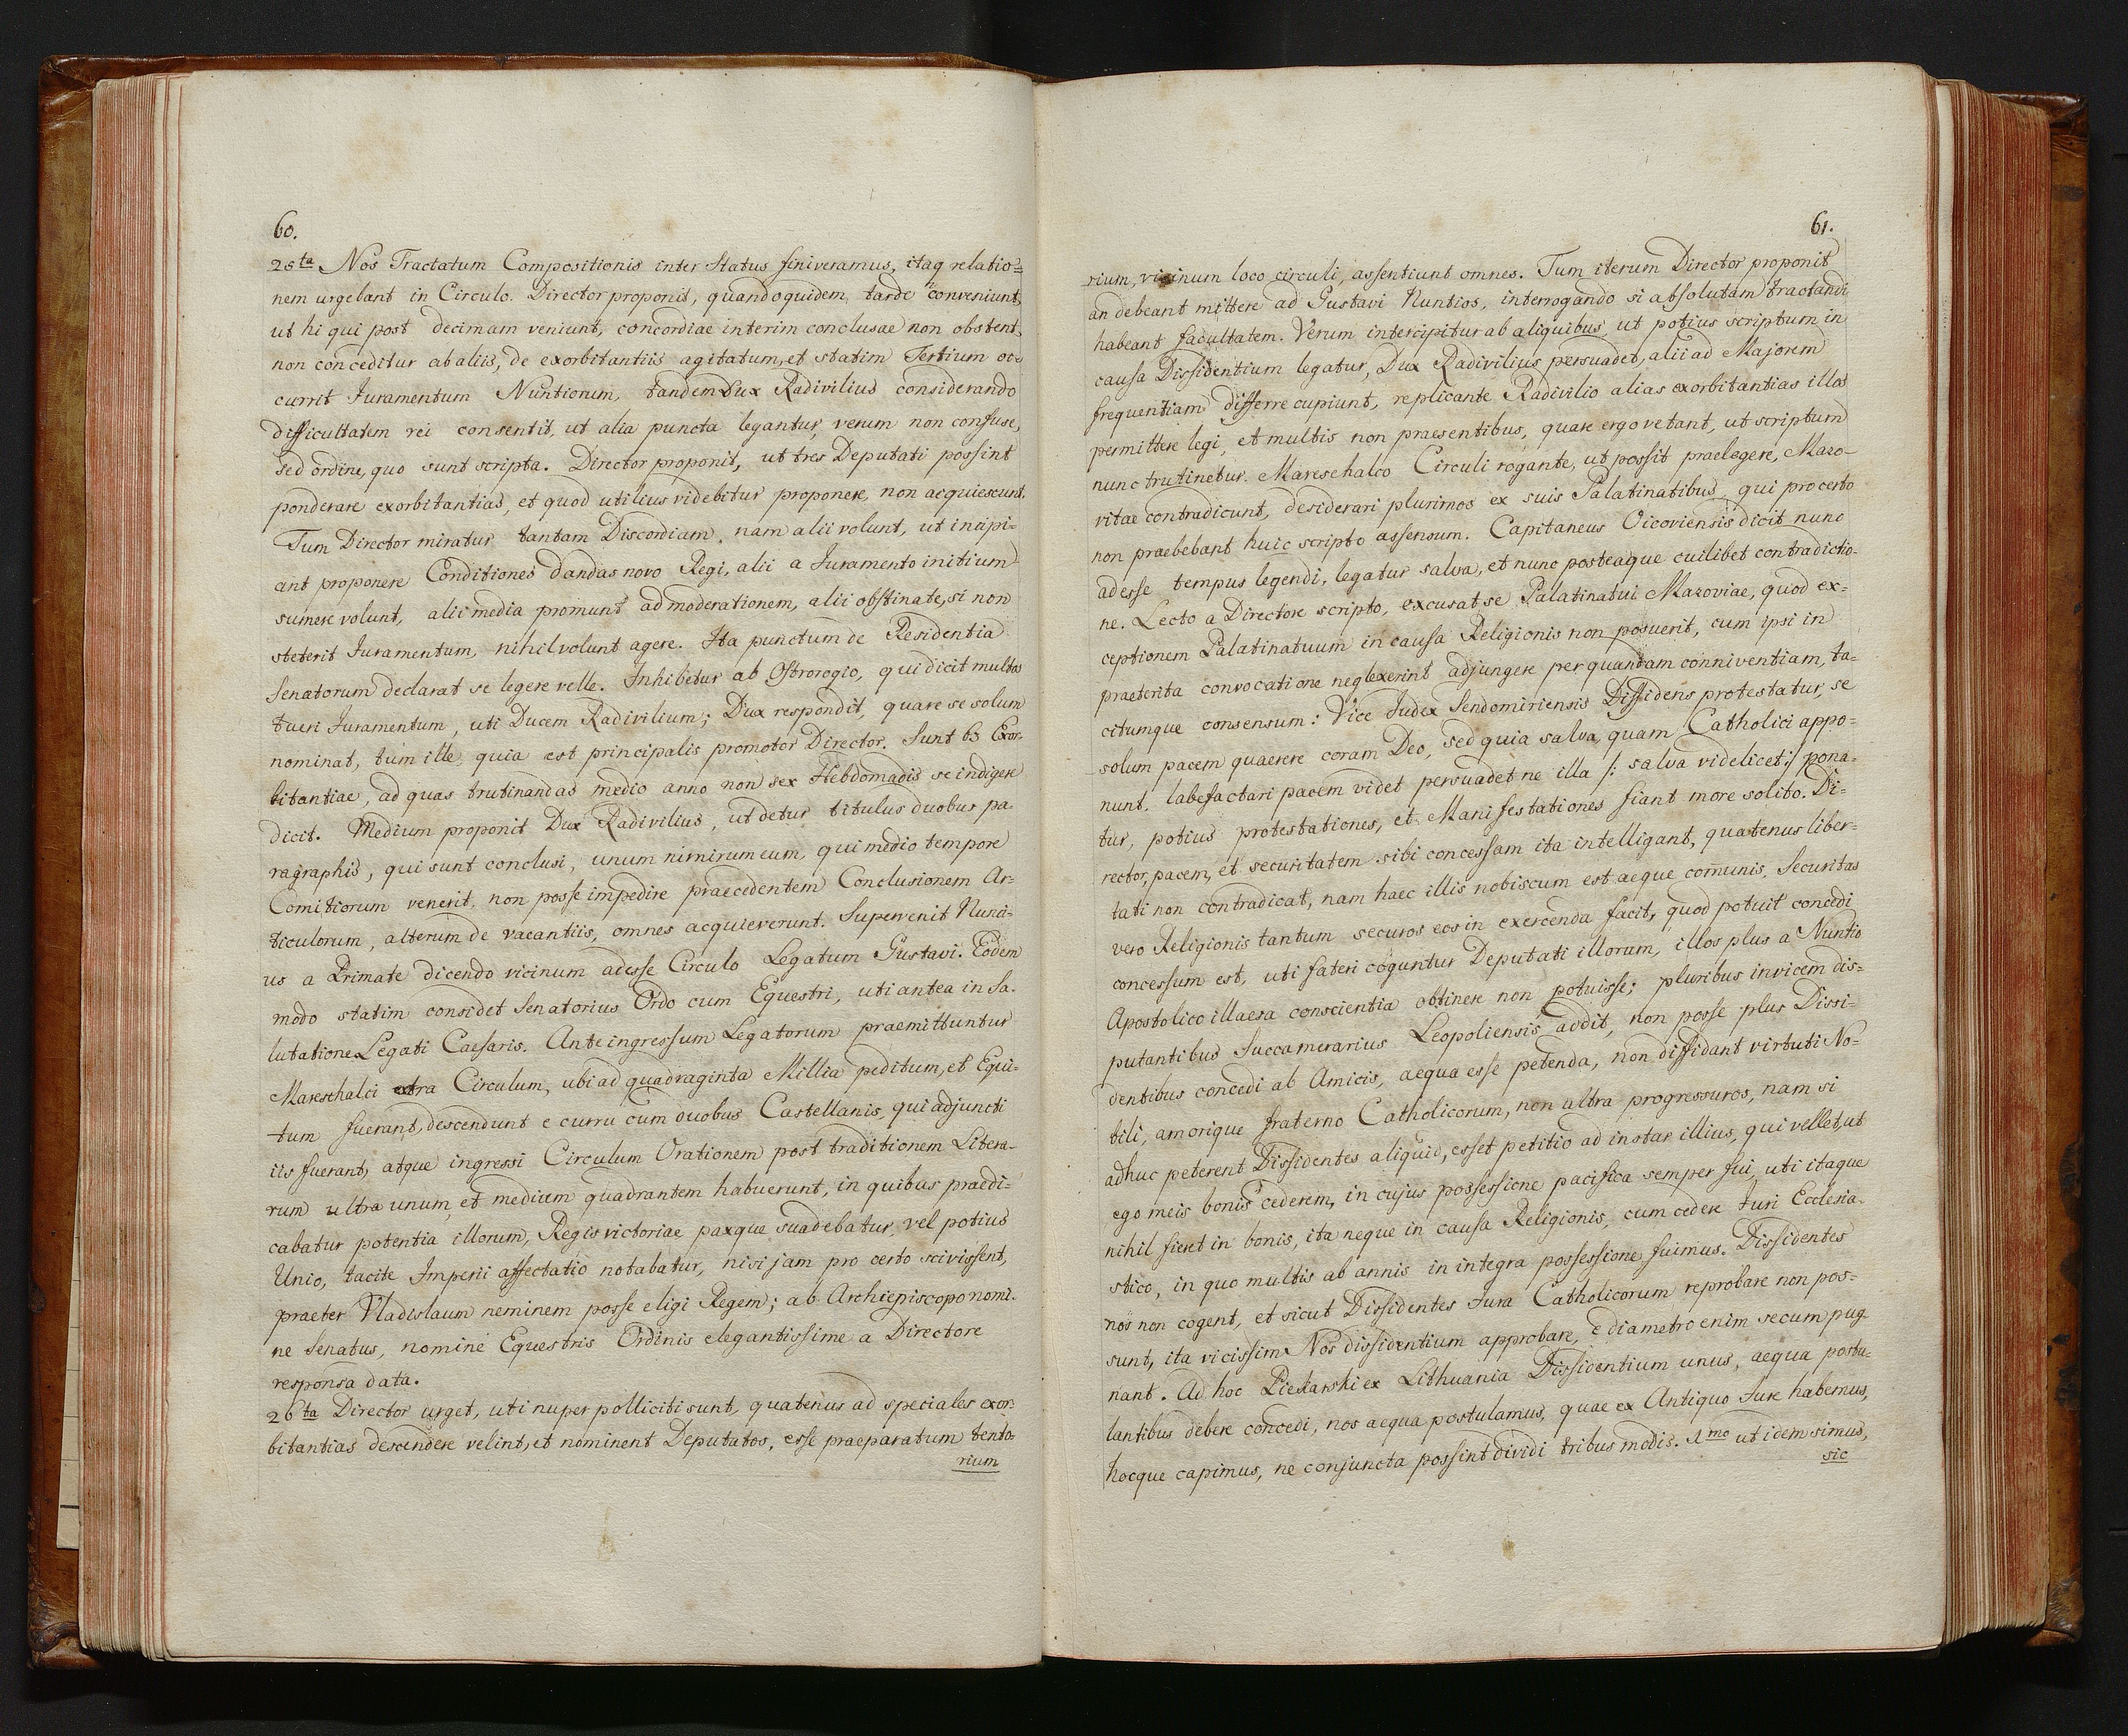 60.
25ta Nos Tractatum Compositionis inter Status finiveramus, itaq relatio=
nem urgebant in Circulo. Director proponit, quandoquidem tarde conveniunt,
ut hi qui post decimam veniunt, concordiae interim conclusae non obstent,
non conceditur ab aliis, de exorbitantiis agitatum, et statim Tertium oc=
currit Juramentum Nuntiorum, tandem Dux Radivilius considerando
difficultatem rei consentit, ut alia puncta legantur, verum non confuse,
sed ordine, quo sunt scripta. Director proponit, ut tres Deputati possint
ponderare exorbitantias, et quod utilius videbitur proponere, non acquiescunt.
Tum Director miratur tantam Discordiam, nam alii volunt, ut incipi=
ant proponere Conditiones dandas novo Regi, alii a Juramento initium
sumere volunt, alii media promunt ad moderationem, alii obstinate, si non
steterit Juramentum, nihil volunt agere. Ita punctum de Residentia
Senatorum declarat se legere velle. Inhibetur ab Ostrorogio, qui dicit multos
tueri Juramentum, uti Ducem Radivilium; Dux respondit, quare se solum
nominat, tum ille, quia est principalis promotor Director. Sunt 63 Exor=
bitantiae, ad quas trutinandas medio anno non sex Hebdomadis se indigere
dicit. Medium proponit Dux Radivilius, ut detur titulus duobus pa=
ragraphis, qui sunt conclusi, unum nimirum eum, qui medio tempore
Comitiorum venerit, non posse impedire praecedentem Conclusionem Ar=
ticulorum, alterum de vacantiis, omnes acquieverunt. Supervenit Nunci=
us a Primate dicendo vicinum adesse Circulo Legatum Gustavi. Eodem
modo statim considet Senatorius Ordo cum Equestri, uti antea in Sa=
lutatione Legati Caesaris. Ante ingressum Legatorum praemittuntur
Mareschalci extra Circulum, ubi ad quadraginta Millia peditum, et Equi=
tum fuerant, descendunt e curru cum duobus Castellanis, qui adjuncti
iis fuerant, atque ingressi Circulum Orationem post traditionem Litera=
rum ultra unum, et medium quadrantem habuerunt, in quibus praedi=
cabatur potentia illorum, Regis victoriae paxque suadebatur, vel potius
Unio, tacite Imperii affectatio notabatur, nisi jam pro certo scivissent,
praeter Vladislaum neminem posse eligi Regem; ab Archiepiscopo nomi=
ne Senatus, nomine Equestris Ordinis elegantissime a Directore
responsa data.
26ta Director urget, uti nuper polliciti sunt, quatenus ad speciales exor=
bitantias descendere velint, et nominent Deputatos, esse praeparatum tento=
rium
61.
rium, vicinum loco circuli, assentiunt omnes. Tum iterum Director proponit
an debeant mittere ad Gustavi Nuntios, interrogando si absolutam tractandi
habeant facultatem. Verum intercipitur ab aliquibus, ut potius scriptum in
causa Dissidentium legatur, Dux Radivilius persuadet, alii ad Majorem
frequentiam differre cupiunt, replicante Radivilio alias exorbitantias illos
permittere legi, et multis non praesentibus, quare ergo vetant, ut scriptum
nunc trutinetur. Mareschalco Circuli rogante, ut possit praelegere, Mazo=
vitae contradicunt, desiderari plurimos ex suis Palatinatibus, qui pro certo
non praebebant huic scripto assensum. Capitaneus Oicoviensis dicit nunc
adesse tempus legendi, legatur salva, et nunc posteaque cuilibet contradictio=
ne. Lecto a Directore scripto, excusat se Palatinatui Mazoviae, quod ex=
ceptionem Palatinatuum in causa Religionis non posuerit, cum ipsi in
praeterita convocatione neglexerint adjungere per quandam conniventiam, ta=
citumque consensum: Vice Judex Sendomiriensis Dissidens protestatur, se
solum pacem quaerere coram Deo, sed quia salva, quam Catholici appo=
nunt, labefactari pacem videt persuadet ne illa /: salva videlicet :/ pona=
tur, potius protestationes, et Manifestationes fiant more solito. Di=
rector, pacem, et securitatem sibi concessam ita intelligant, quatenus liber=
tati non contradicat, nam haec illis nobiscum est aeque com̄unis, Securitas
vero Religionis tantum securos eos in exercenda facit, quod potuit concedi
concessum est, uti fateri coguntur Deputati illorum, illos plus a Nuntio
Apostolico illaesa conscientia obtinere non potuisse; pluribus invicem dis=
putantibus Succamerarius Leopoliensis addit, non posse plus Dissi=
dentibus concedi ab Amicis, aequa esse petenda, non diffidant virtuti No=
bili, amorique fraterno Catholicorum, non ultra progressuros, nam si
adhuc peterent Dissidentes aliquid, esset petitio ad instar illius, qui vellet, ut
ego meis bonis cederem, in cujus possessione pacifica semper fui, uti itaque
nihil fieret in bonis, ita neque in causa Religionis, cum cedere Juri Ecclesia=
stico, in quo multis ab annis in integra possessione fuimus. Dissidentes
nos non cogent, et sicut Dissidentes Jura Catholicorum reprobare non pos=
sunt, ita vicissim Nos dissidentium approbare, e diametro enim secum pug=
nant. Ad hoc Piekarski ex Lithuania Dissidentium unus, aequa postu=
lantibus debere concedi, nos aequa postulamus, quae ex Antiquo Jure habemus,
hocque capimus, ne conjuncta possint dividi tribus modis. 1mo ut idem simus,
sic